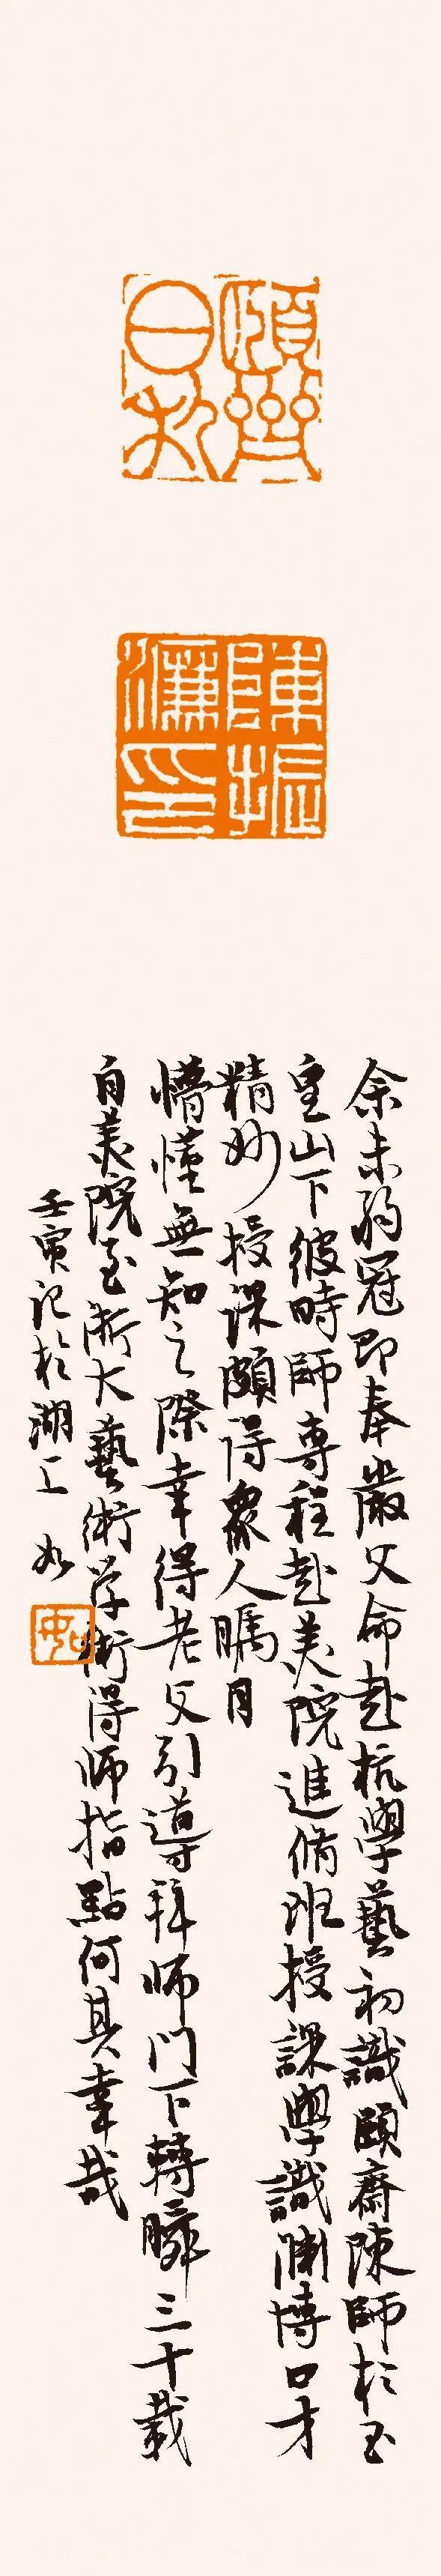 頤齋日利
陳振濂印
余未弱冠即奉嚴父命赴杭學藝初識頤齋陳師於玉
皇山下彼時師專程赴美院進脩班授課學識淵博口才
精妙授課頗得衆人矚目
懵懂無知之際幸得老父引導拜師門下轉瞬三十載
自美院至浙大藝術学術得師指點何其幸哉
壬寅記於湖上 如